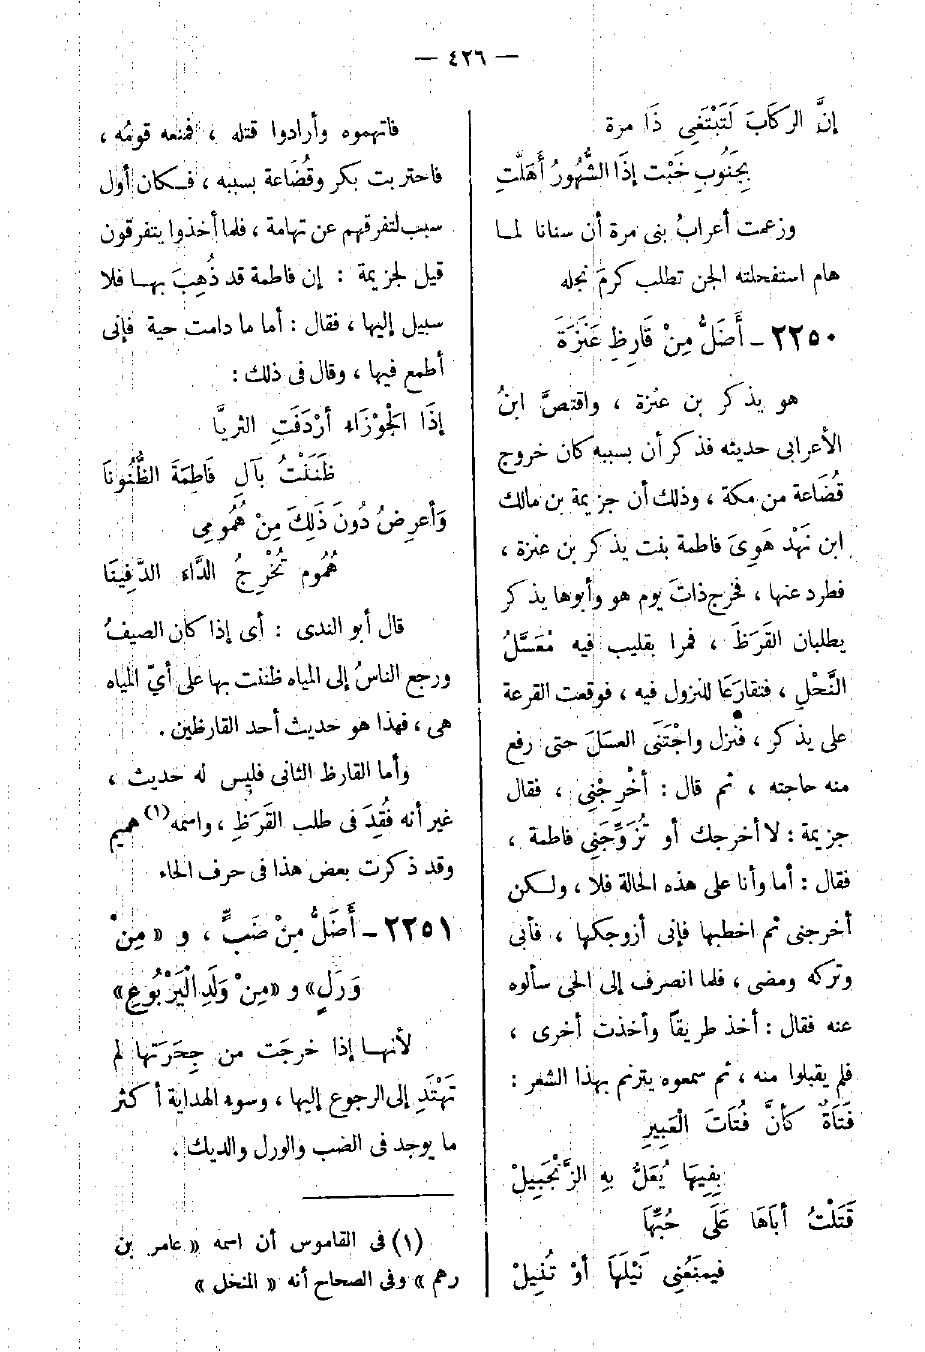 — ٤٢٦ —
إنَّ الركَابَ لَتَبْتَغِي ذَا مرة
بِجَنُوبِ خَبْت إذَا الشُّهُورُ أَهَلَّتِ
وزعمت أعرابُ بنى مرة أن سنانا لما
هام استفحلته الجن تطلب كرمَ نجله
٢٢٥٠ ـ أَضَلُّ مِنْ قَارِظِ عَنَزَةَ
هو يذكر بن عنزة ، واقتصَّ ابنُ
الأعرابى حديثه فذكر أن بسببه كان خروج
قُضَاعة من مكة ، وذلك أن جزيمة بن مالك
ابن نَهْد هَوِىَ فاطمة بنت يذكر بن عنزة ،
فطرد عنها ، فخرج ذاتَ يوم هو وأبوها يذكر
يطلبان القَرَظَ ، فمرا بقليب فيه مُعَسَّلُ
النَّحْلِ ، فتقارَعَا للنزول فيه ، فوقعت القرعة
على يذكر ، فنزل واجْتَنَى العسَلَ حتى رفع
منه حاجته ، ثم قال : أخْرِجْنِى ، فقال
جزيمة : لا أخرجك أو تُزَوِّجَنِى فاطمة ،
فقال : أما وأنا على هذه الحالة فلا ، ولكن
أخرجنى ثم اخطبها فإنى أزوجكها ، فأبى
وتركه ومضى ، فلما انصرف إلى الحى سألوه
عنه فقال : أخذ طريقاً وأخذت أخرى ،
فلم يقبلوا منه ، ثم سمعوه يترنم بهذا الشعر :
فَتَاةٌ كَأَنَّ فُتَاتَ الْعَبِيرِ
بِفِيهَا يُعَلُّ بِهِ الزَّنْجَبِيلْ
قَتَلْتُ أبَاهَا عَلَى حُبِّهَا
فيمنَعُنِى نَيْلَهَا أوْ تُنِيلْ
فاتهموه وأرادوا قتله ، فمنعه قومُه ،
فاحتربت بكر وقُضَاعة بسببه ، فكان أول
سبب لتفرقهم عن تهامة ، فلما أخذوا يتفرقون
قيل لجزيمة : إن فاطمة قد ذُهِبَ بها فلا
سبيل إليها ، فقال : أما ما دامت حية فإنى
أطمع فيها ، وقال فى ذلك :
إذَا الْجَوْزَاء أرْدَفَتِ الثريَّا
ظَنَنْتُ بآلِ فَاطِمَةَ الظُّنُونَا
وَأعرِضُ دُونَ ذَلِكَ مِنْ هُمُومِى
هُمُوم تُخْرِجُ الدَّاء الدَّفِينَا
قال أبو الندى : أى إذا كان الصيفُ
ورجع الناسُ إلى المياه ظننت بها على أىّ المياه
هى ، فهذا هو حديث أحد القارظين .
وأما القارظ الثانى فليس له حديث ،
غير أنه فُقِدَ فى طلب القَرَظِ ، واسمه (١) هميم
وقد ذكرت بعض هذا فى حرف الحاء
٢٢٥١ ـ أَضَلُّ مِنْ ضَبٍّ ، و « مِنْ
وَرَلٍ » و « مِنْ وَلَدِ الْيَرْبُوعِ »
لأنها إذا خرجَت من جِحَرَتها لم
تَهْتَدِ إلى الرجوع إليها ، وسوء الهداية أكثر
ما يوجد فى الضب والورل والديك .
(١) فى القاموس أن اسمه « عامر بن
رهم » وفى الصحاح أنه « المنخل »